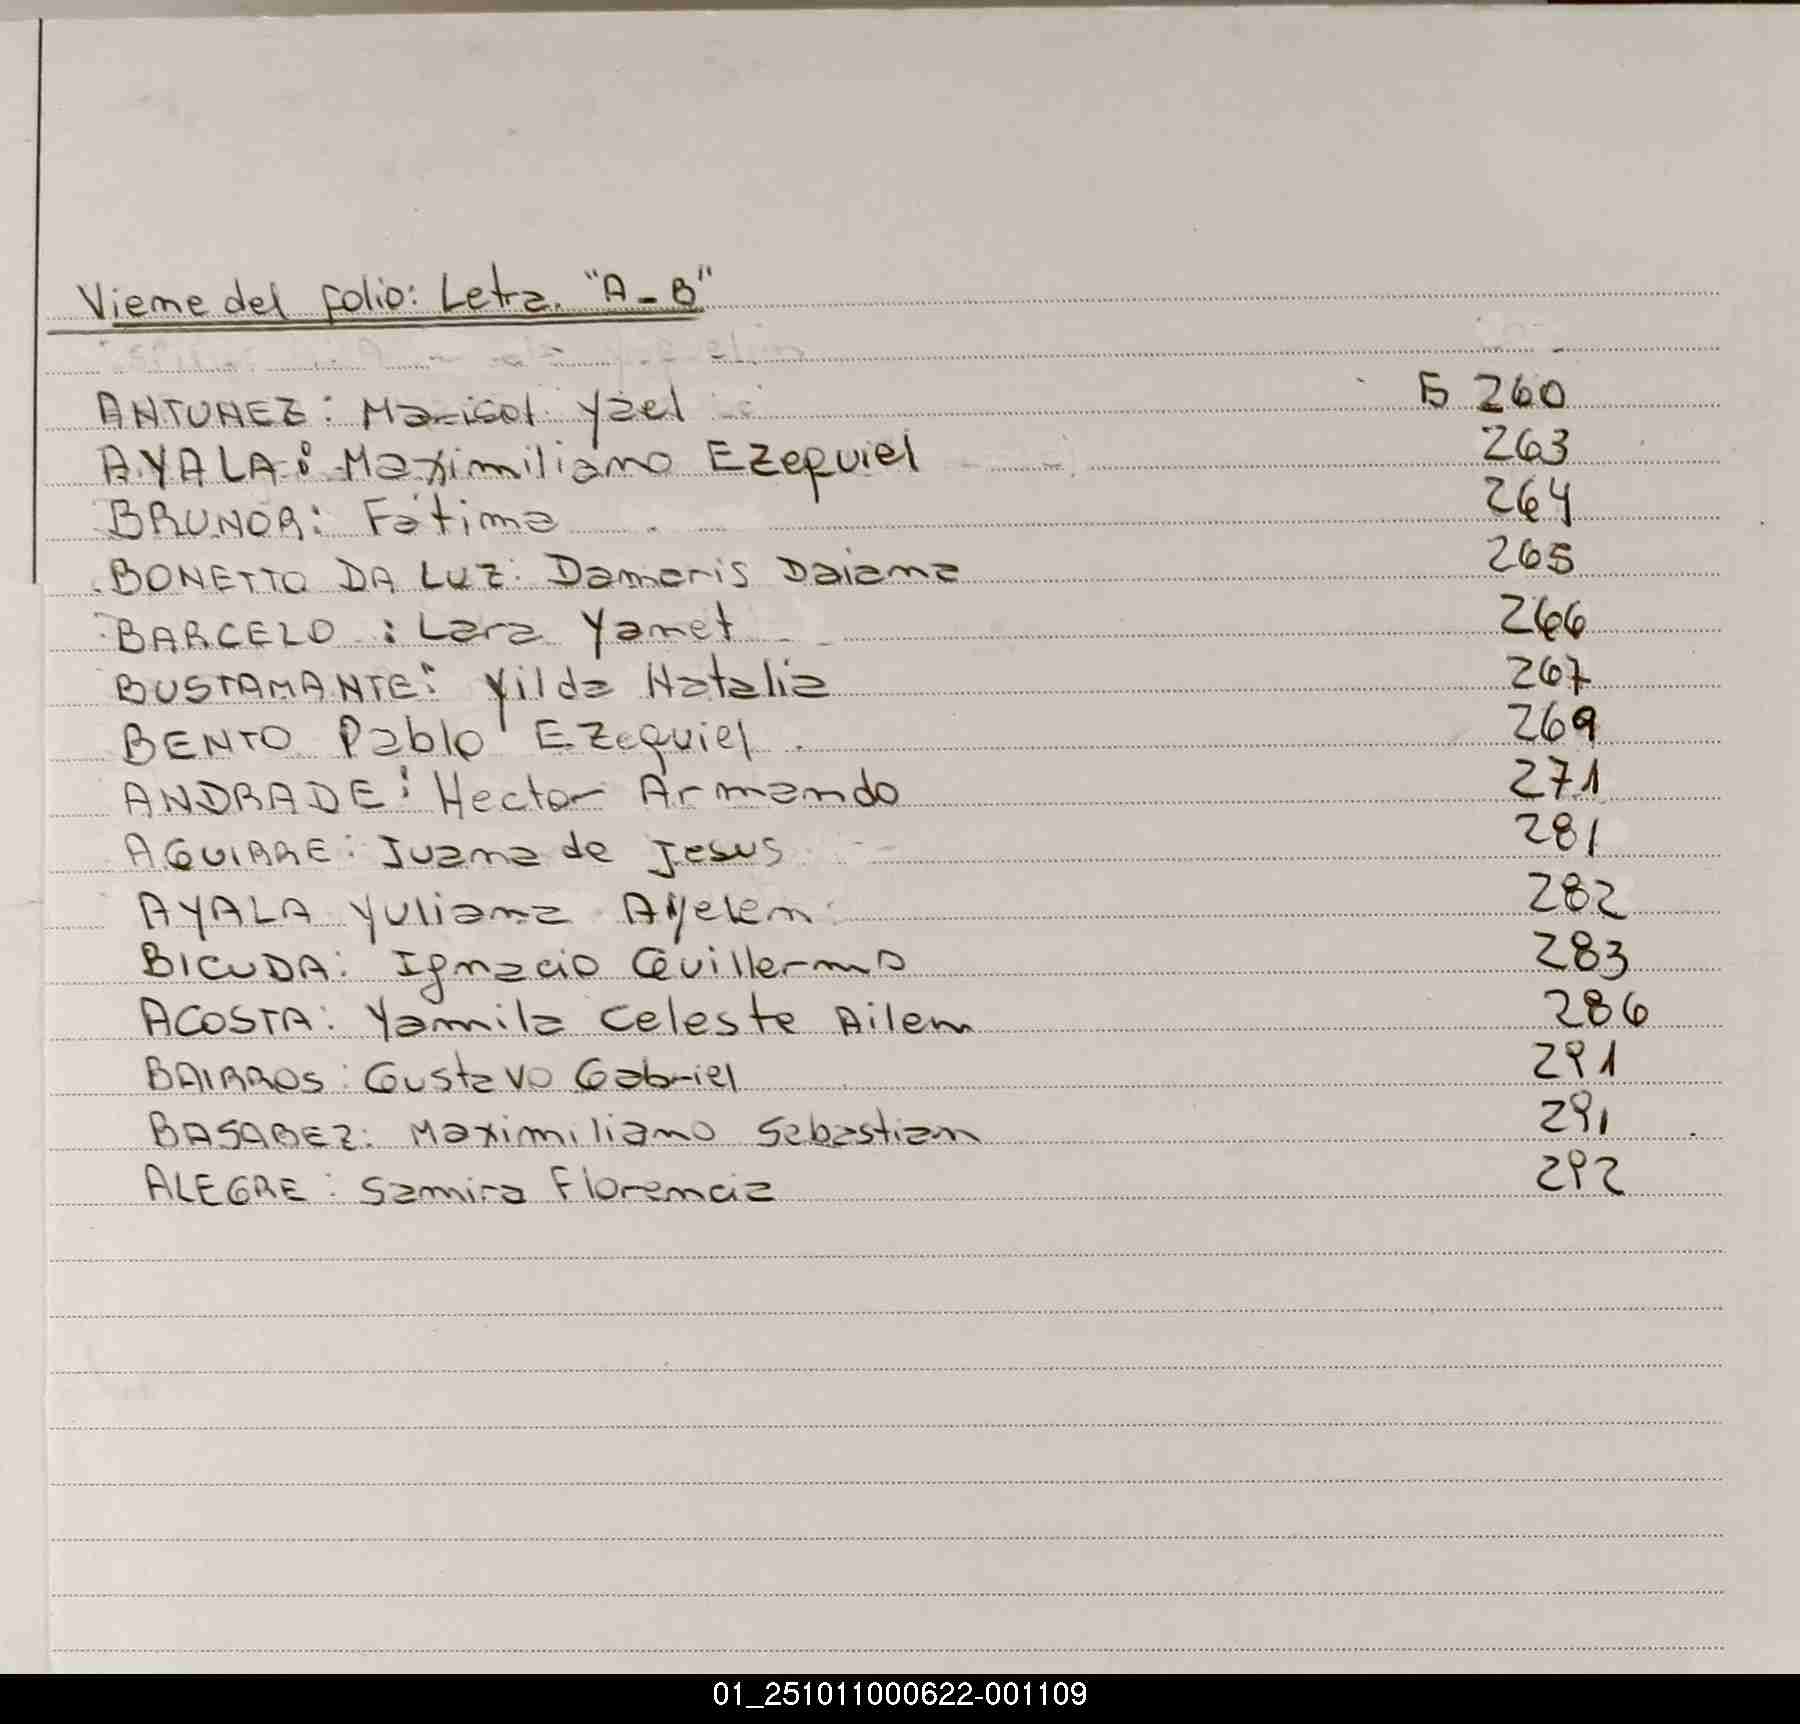 Viene del folio: Letra. "A-B"
ANTUNEZ: Marisol Yael 260
AYALA: Maximiliano Ezequiel 263
BRUNOR: Fátima 264
BONETTO DA LUZ: Damaris Daiana 265
BARCELO: Lara Yamet 266
BUSTAMANTE: Yilda Natalia 267
BENTO Pablo Ezequiel 269
ANDRADE: Hector Armando 271
AGUIRRE: Juana de Jesus 281
AYALA Yuliana Ayelen 282
BICUDA: Ignacio Guillermo 283
ACOSTA: Yamila Celeste Ailen 286
BAIRROS: Gustavo Gabriel 291
BASABEZ: Maximiliano Sebastian 291
ALEGRE: Samira Florencia 292
01_251011000622-001109